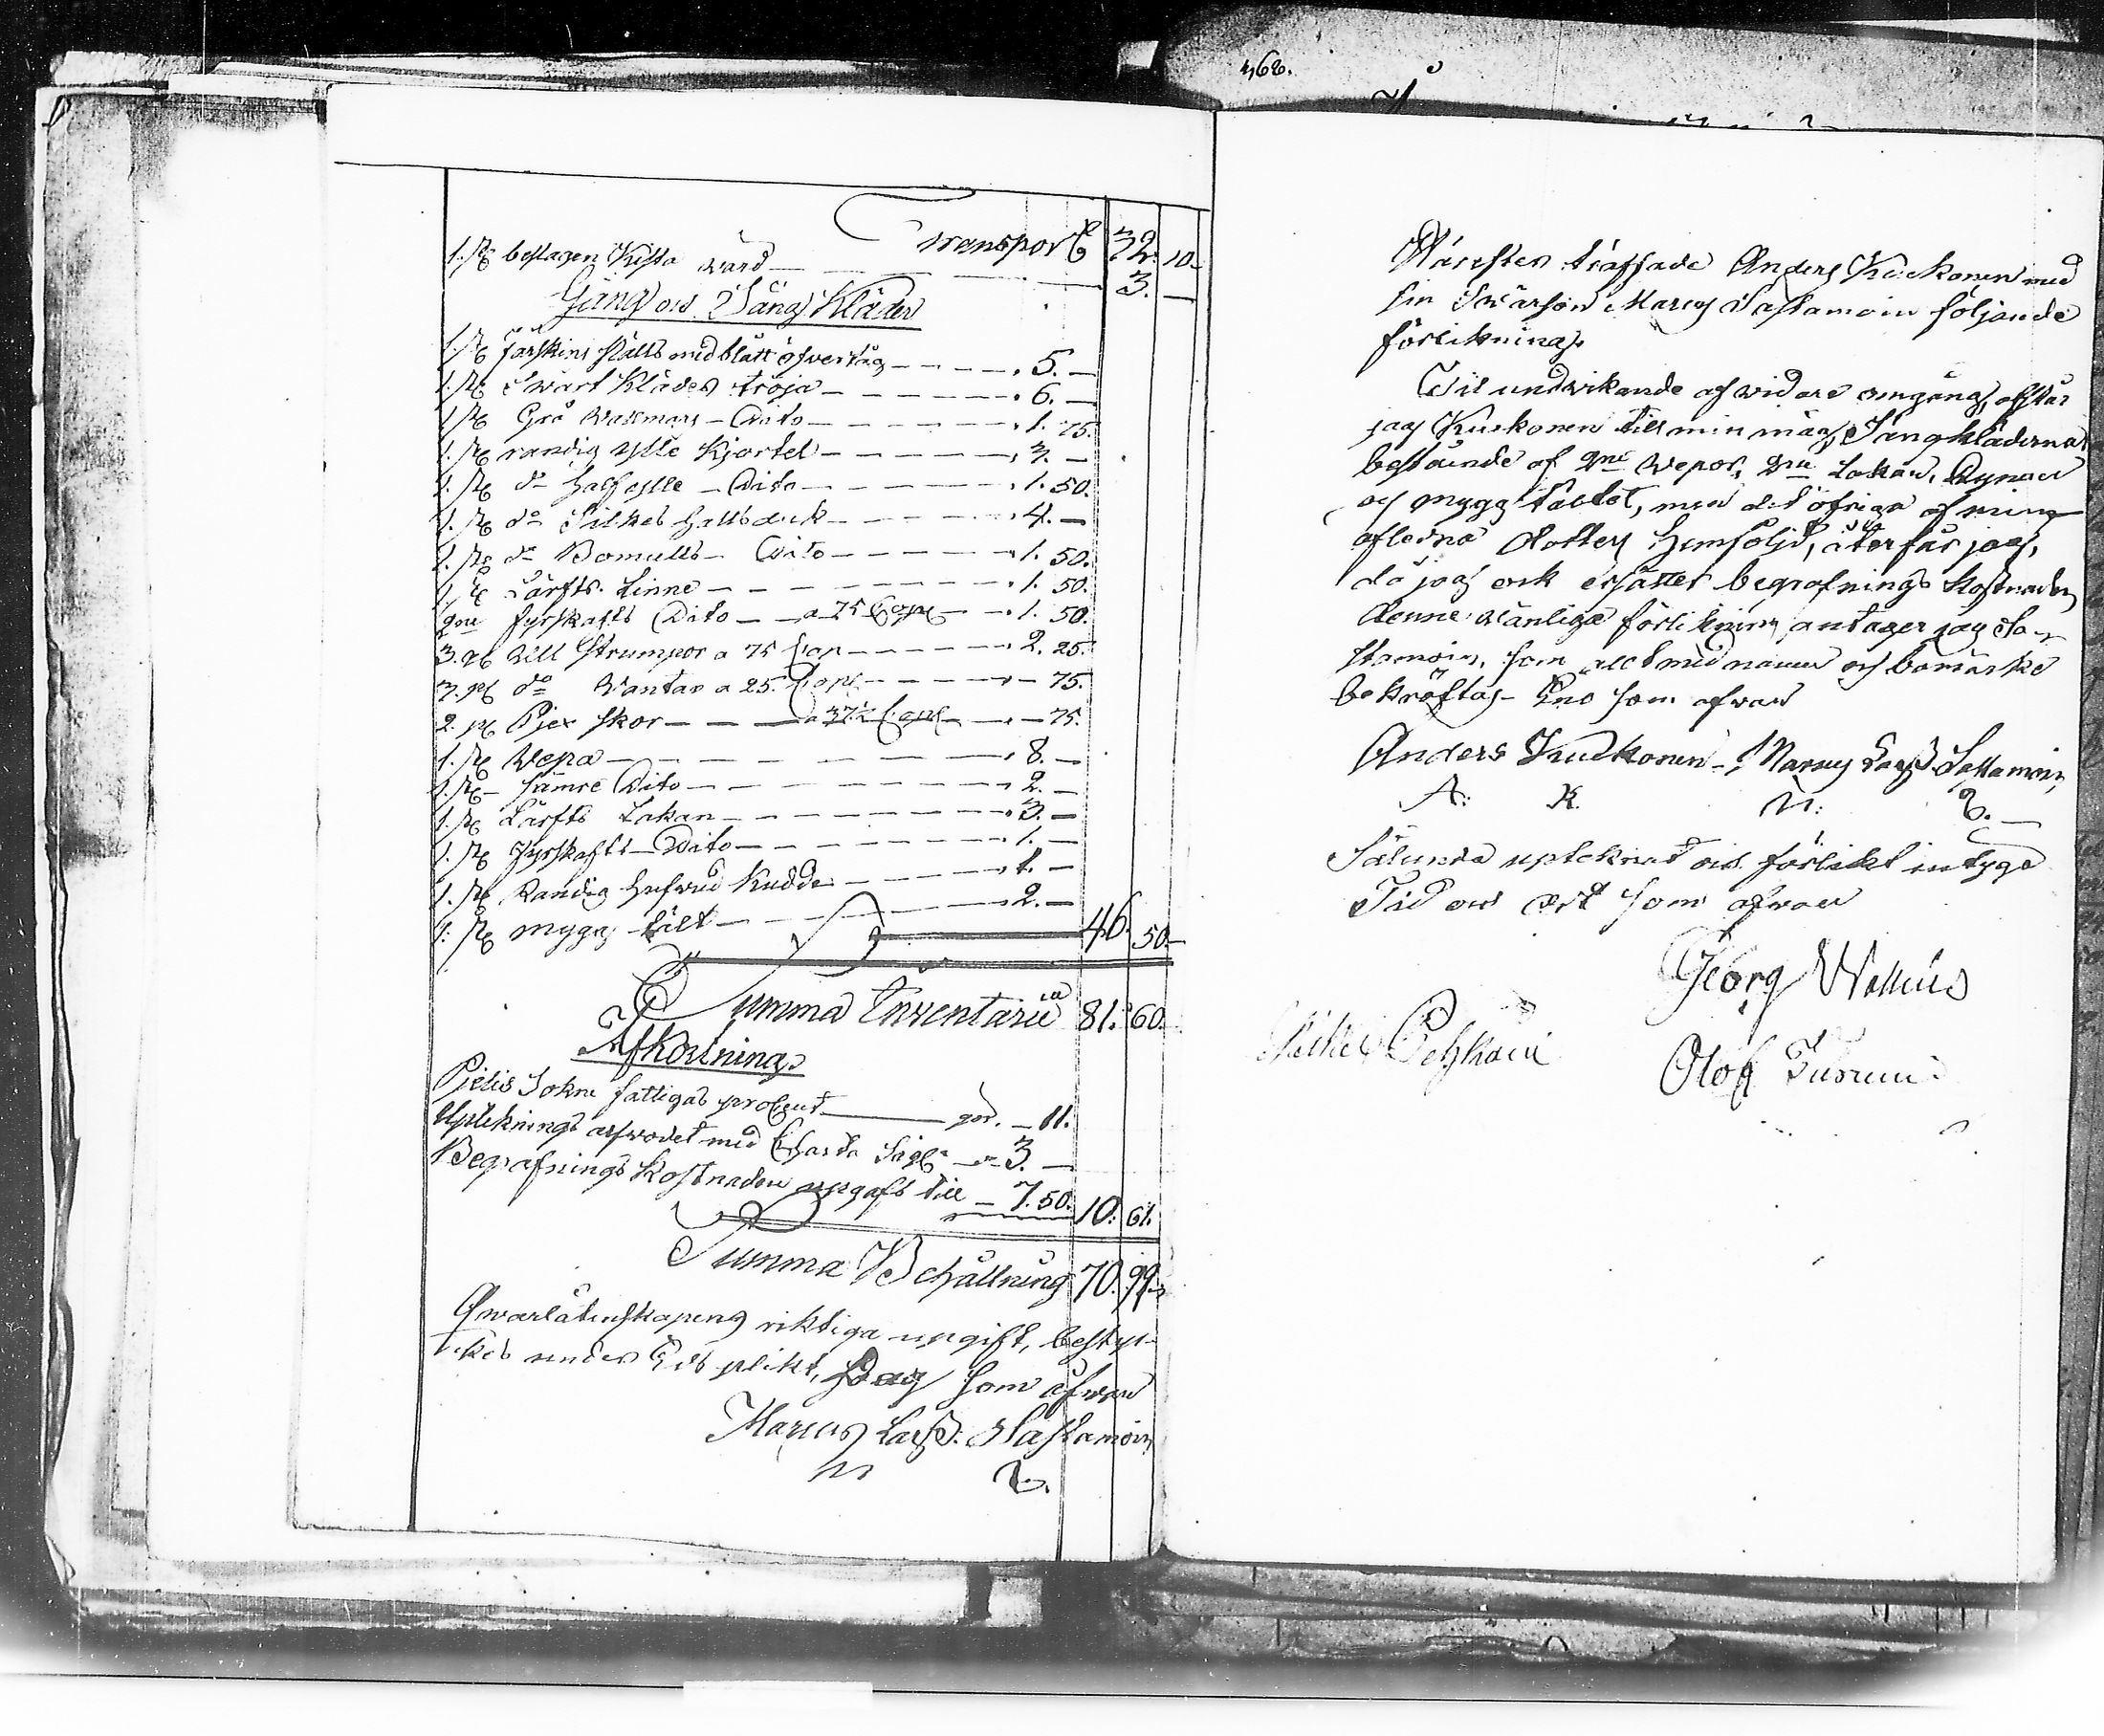 Transport 32. 10.
1. st beslagen Kista värd — 3. —
Gång och Säng Kläder
1. st fårskins fälls med blått öfvertåg — 5. —
1. st Swart Klädes tröja — 6. —
1 st Grå Wallmans — Dito — 1. 75.
1. st randig ylle Kjortel — 3. —
1. st do halfylle — Dito — 1. 50.
1. st do Silkes halsduk — 4. —
1. st do Bomulls — Dito — 1. 50.
1. st Lärfts Linne — 1. 50.
2ne fyrskafts Dito — a 75 Cop — 1. 50.
3. pr Ull Strumpor a 75 Cop — 2. 25.
3. pr do Wantar a 25. Cop — 75.
2. pr Pjex skor — a 37½ Cop — 75.
1. st Wepa — 8. —
1. st sämre Dito — 2. —
1. st Lärfts Lakan — 3. —
1. st fyrskafts — Dito — 1. —
1. st Randig hufwud Kudde — 1. —
1. st mygg tält — 2. — 46. 50.
Summa Inventarii 81. 60.
Afkortning
Pielis Sokne fattigas procent — gör. — 11.
Upteknings arfvodet med Charta Sigl. — 3. —
Begrafnings Kostnaden upgafs till — 7. 50. 10. 61.
Summa Behållning 70. 99.
Qwarlåtenskapens riktiga upgift, bestyr-
kes under Eds plikt, Dag som åfwan
Marcus Larss. Sastamoin
M
462.
Härefter träffade Anders Kuckonen med
sin Swärson Marcus Sastamoin följande
förlikning.
Til undwikande af widare omgång, afstår
jag Kuckonen till min måg, Sängkläderna
bestående af 2ne Wepor, 2ne Lakan, Dynan
och mygg tältet, men det öfriga af min
aflidna dotters hemföljd, återfår jag,
då jag ock ersätter begrafnings Kostnaden
denne wänliga förlikning antager jag Sa-
stamoin, som allt med namn och bomärke
bekräftas. Eno som ofwan
Anders Kuckonen Marcus Larss. Sastamoin
A: K. M:
Sålunda upteknat och förlikt intyga
Tid och ort som ofwan
Georg Wallius
Olof Turunen